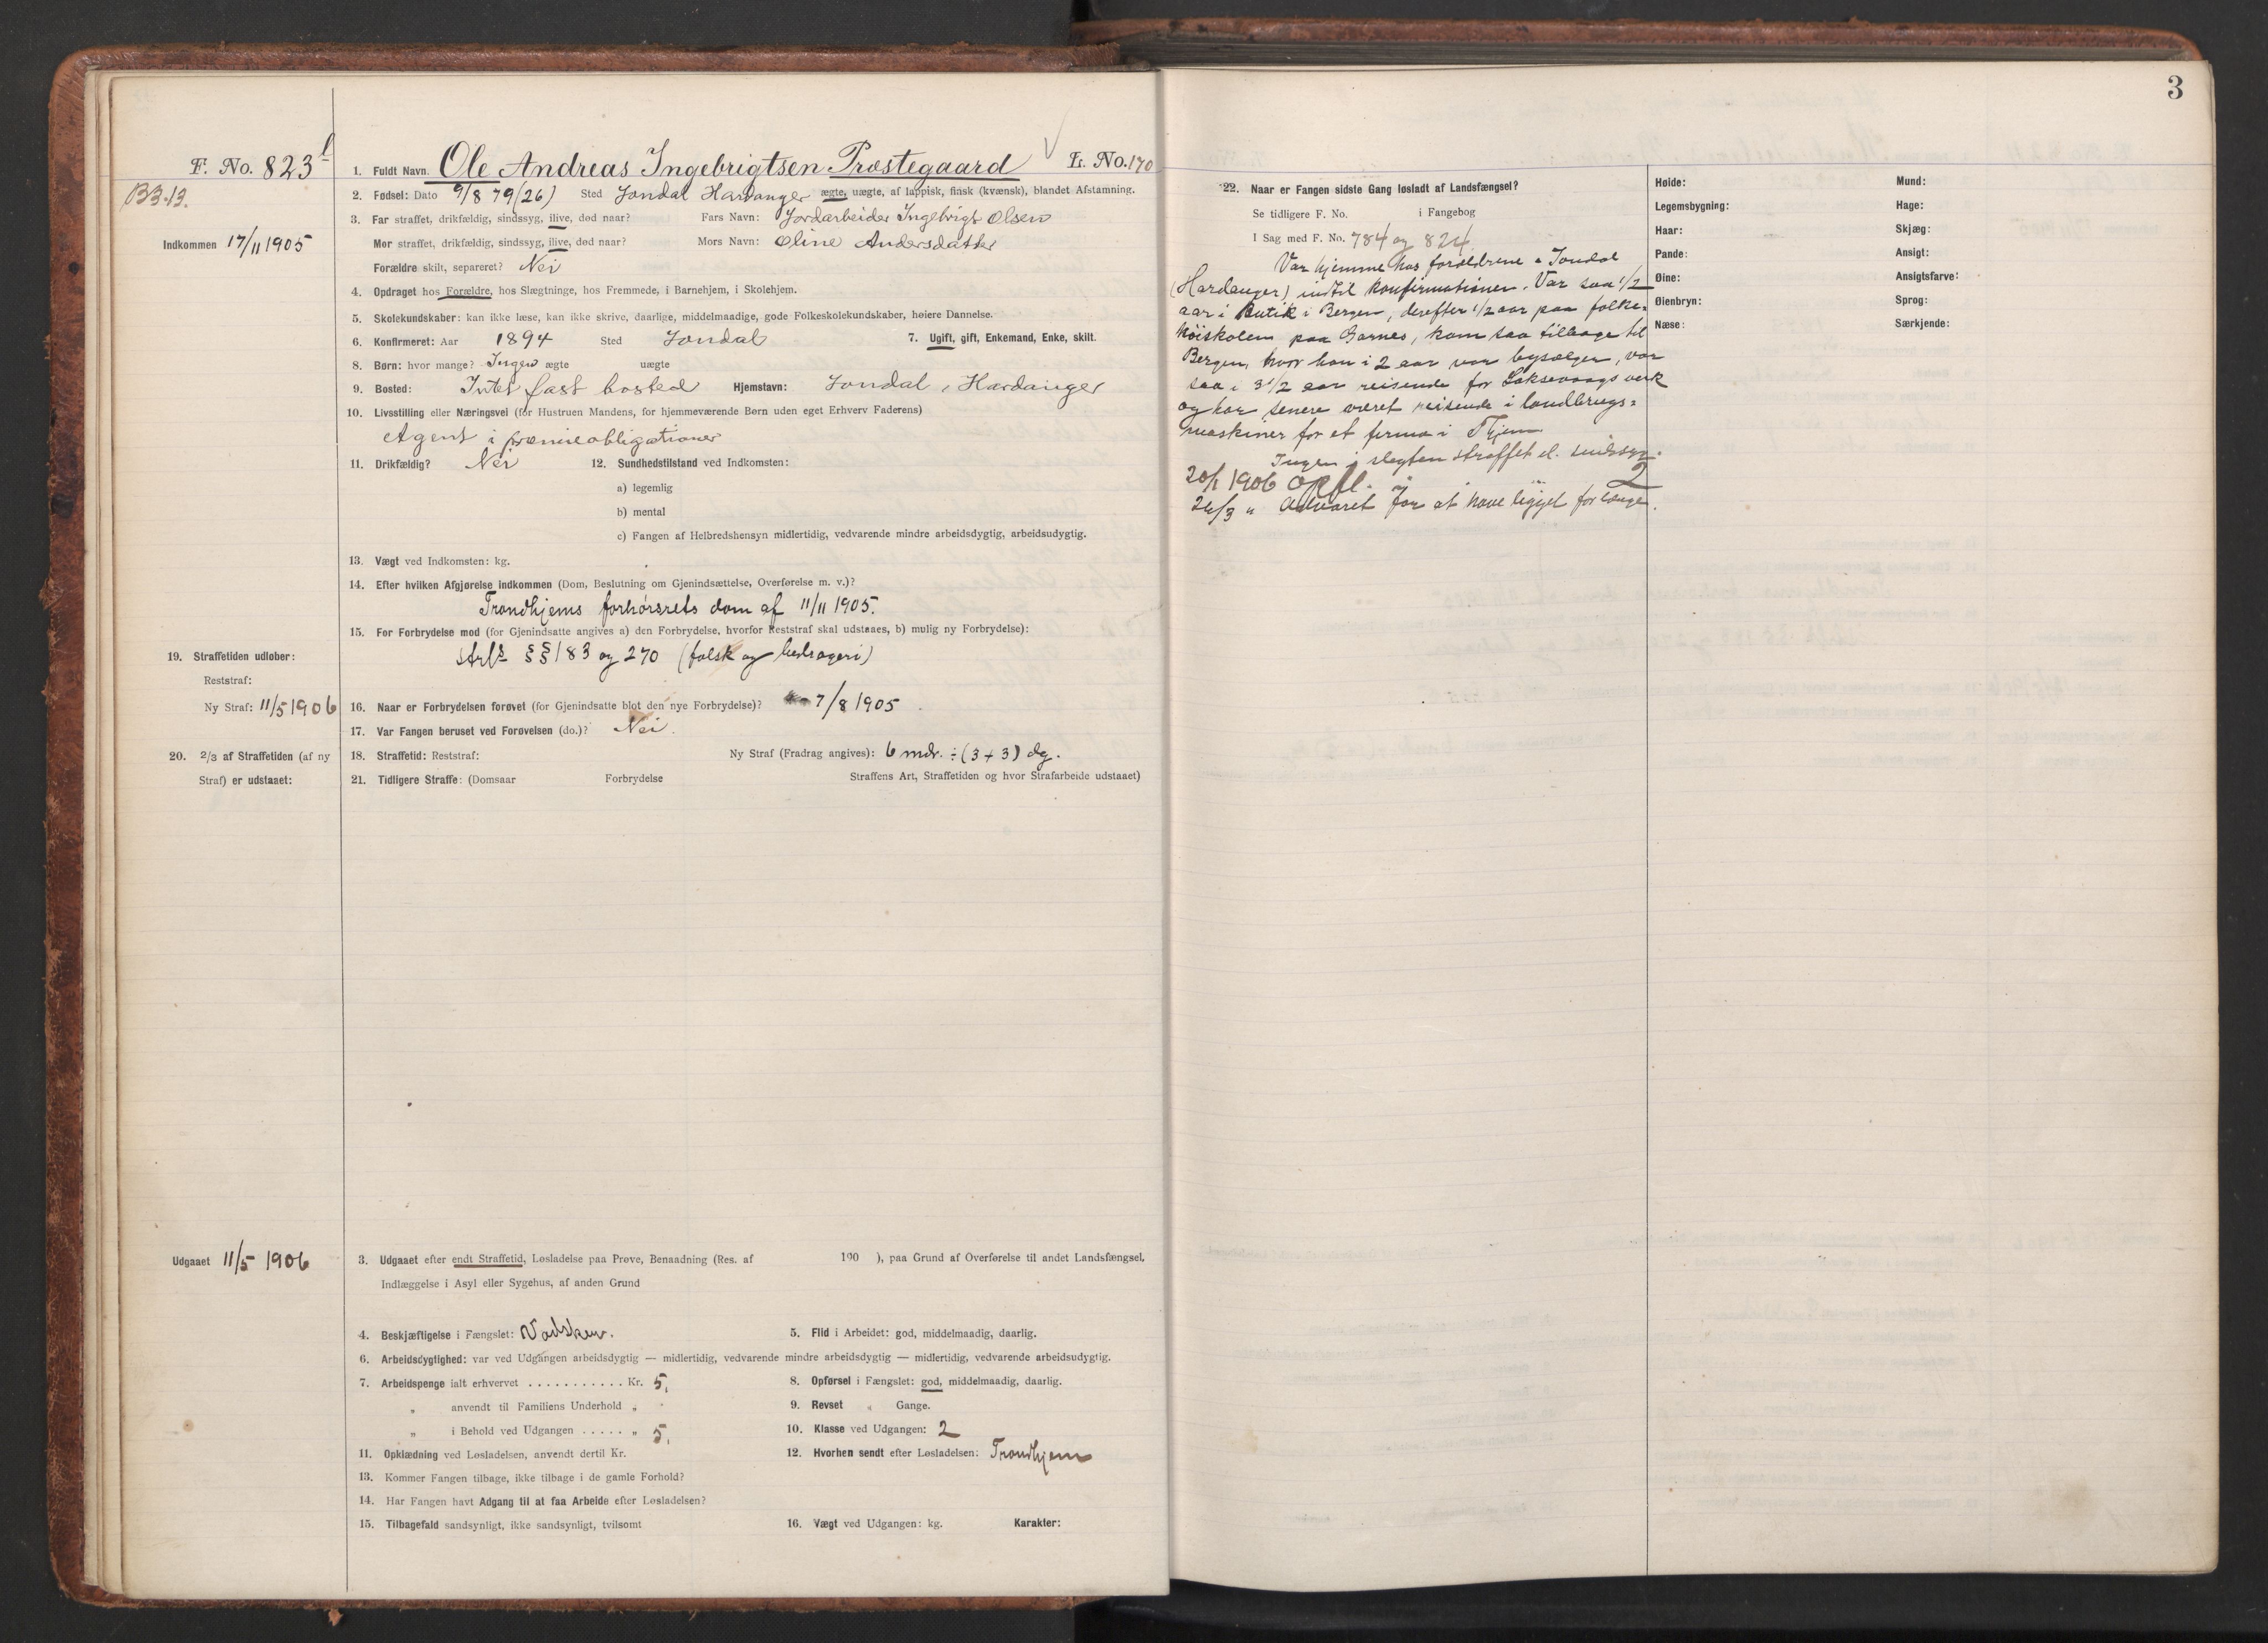 3
F. No. 823
1. Fuldt Navn. Ole Andreas Ingebrigtsen Præstegaard L. No. 170
BB.13.
2. Fødsel: Dato 9/8 79 (26) Sted Jondal Hardanger ægte, uægte, af lappisk, finsk (kvænsk), blandet Afstamning.
3. Far straffet, drikfældig, sindssyg, ilive, død naar? Fars Navn: Jordarbeider Ingebrigt Olsen
Indkommen 17/11 1905
Mor straffet, drikfældig, sindssyg, ilive, død naar? Mors Navn: Oline Andersdatter
Forældre skilt, separeret? Nei
4. Opdraget hos Forældre, hos Slægtninge, hos Fremmede, i Barnehjem, i Skolehjem.
5. Skolekundskaber: kan ikke læse, kan ikke skrive, daarlige, middelmaadige, gode Folkeskolekundskaber, høiere Dannelse.
6. Konfirmeret: Aar 1894 Sted Jondal 7. Ugift, gift, Enkemand, Enke, skilt.
8. Børn: hvor mange? Ingen ægte uægte
9. Bosted: Intet fast bosted Hjemstavn: Jondal, Hardanger
10. Livsstilling eller Næringsvei (for Hustruen Mandens, for hjemmeværende Børn uden eget Erhverv Faderens)
Agent i præmieobligationer
11. Drikfældig? Nei 12. Sundhedstilstand ved Indkomsten:
a) legemlig
b) mental
c) Fangen af Helbredshensyn midlertidig, vedvarende mindre arbeidsdygtig, arbeidsudygtig.
13. Vægt ved Indkomsten: kg.
14. Efter hvilken Afgjørelse indkommen (Dom, Beslutning om Gjenindsættelse, Overførelse m. v.)?
Trondhjems forhørsrets dom af 11/11 1905.
15. For Forbrydelse mod (for Gjenindsatte angives a) den Forbrydelse, hvorfor Reststraf skal udstaaes, b) mulig ny Forbrydelse):
strfl. §§ 183 og 270 (falsk og bedrageri)
19. Straffetiden udløber:
Reststraf:
Ny Straf: 11/5 1906
16. Naar er Forbrydelsen forøvet (for Gjenindsatte blot den nye Forbrydelse)? 7/8 1905
17. Var Fangen beruset ved Forøvelsen (do.)? Nei.
20. 2/3 af Straffetiden (af ny
Straf) er udstaaet:
18. Straffetid: Reststraf: Ny Straf (Fradrag angives): 6 mdr. ÷ (3 + 3) dg.
21. Tidligere Straffe: (Domsaar Forbrydelse Straffens Art, Straffetiden og hvor Strafarbeide udstaaet)
Udgaaet 11/5 1906
3. Udgaaet efter endt Straffetid, Løsladelse paa Prøve, Benaadning (Res. af 190 ), paa Grund af Overførelse til andet Landsfængsel,
Indlæggelse i Asyl eller Sygehus, af anden Grund
4. Beskjæftigelse i Fængslet: 5. Flid i Arbeidet: god, middelmaadig, daarlig.
6. Arbeidsdygtighed: var ved Udgangen arbeidsdygtig — midlertidig, vedvarende mindre arbeidsdygtig — midlertidig, vedvarende arbeidsudygtig.
7. Arbeidspenge ialt erhvervet . . . . . . . . . . . Kr. 5, 8. Opførsel i Fængslet: god, middelmaadig, daarlig.
„ anvendt til Familiens Underhold „ 9. Revset „ Gange.
„ i Behold ved Udgangen . . . . . „ 5, 10. Klasse ved Udgangen: 2
11. Opklædning ved Løsladelsen, anvendt dertil Kr. 12. Hvorhen sendt efter Løsladelsen: Trondhjem
13. Kommer Fangen tilbage, ikke tilbage i de gamle Forhold?
14. Har Fangen havt Adgang til at faa Arbeide efter Løsladelsen?
15. Tilbagefald sandsynligt, ikke sandsynligt, tvilsomt 16. Vægt ved Udgangen: kg. Karakter:
22. Naar er Fangen sidste Gang løsladt af Landsfængsel?
Se tidligere F. No. i Fangebog
I Sag med F. No. 784 og 824
Var hjemme hos forældrene i Jondal
(Hardanger) indtil konfirmationen. Var saa 1/2
aar i Butik i Bergen, derefter 1/2 aar paa folke=
høiskolen paa Garnes, kom saa tilbage til
Bergen, hvor han i 2 aar var bysælger, var
saa i 3 1/2 aar reisende for Laksevaags verk
og har senere været reisende i landbrugs=
maskiner for et firma i Thjem.
Ingen i slegten straffet el. sindssyg.
20/1 1906 opfl. 2
24/3 „ Advaret for at have ligget for længe.
Høide: Mund:
Legemsbygning: Hage:
Haar: Skjæg:
Pande: Ansigt:
Øine: Ansigtsfarve:
Øienbryn: Sprog:
Næse: Særkjende: